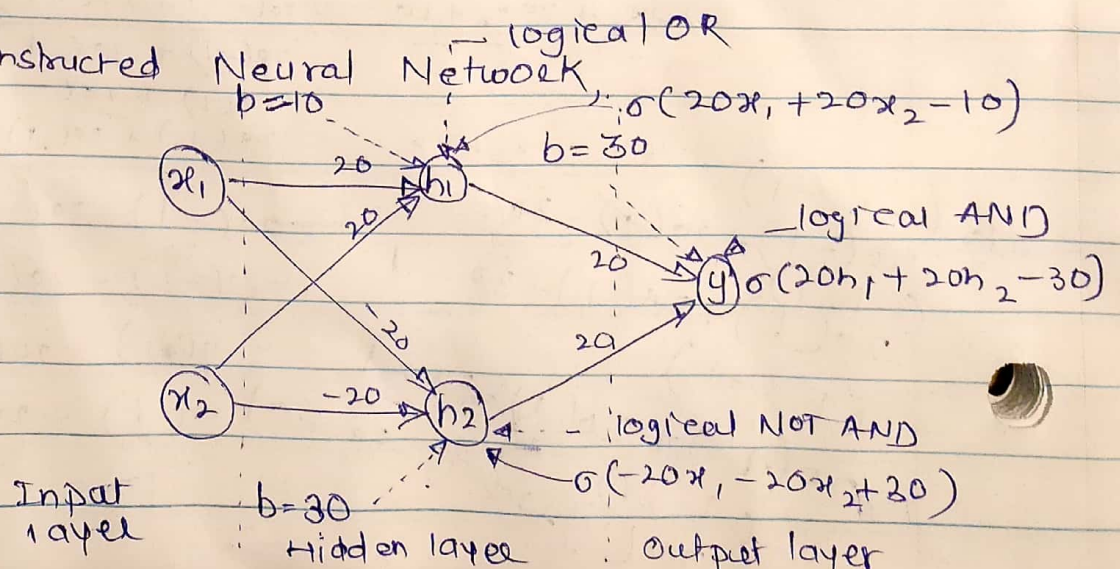 – logical OR
nstructed Neural Network
b=10
σ(20x₁ +20x₂ -10)
b= 30
x₁
20
h₁
20
– logical AND
20
y
σ(20h₁+ 20h₂ -30)
-20
20
x₂
-20
h₂
- logical NOT AND
σ(-20x₁ -20x₂+30)
Inpat
layer
b=30
Hidden layer
Output layer